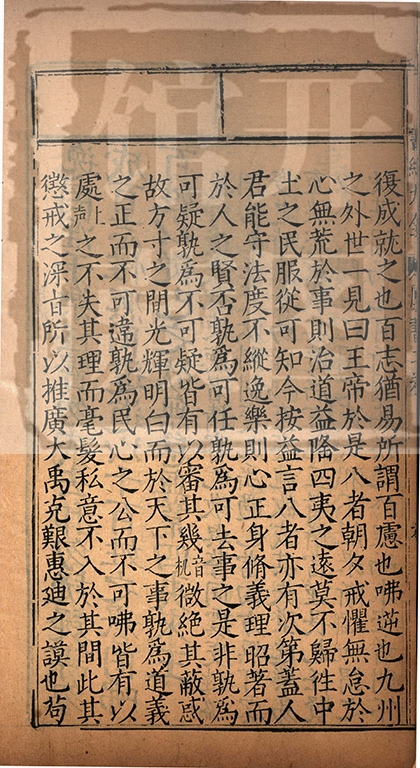 復成就之也百志猶易所謂百慮也咈逆也九州
之外世一見曰王帝於是八者朝夕戒懼無怠於
心無荒於事則治道益隆四夷之遠莫不歸徃中
土之民服從可知今按益言八者亦有次第蓋人
君能守法度不縱逸樂則心正身脩義理昭著而
於人之賢否孰爲可任孰爲可去事之是非孰爲
可疑孰爲不可疑皆有以審其幾音机微絶其蔽惑
故方寸之間光輝明白而於天下之事孰爲道義
之正而不可違孰爲民心之公而不可咈皆有以
處上声之不失其理而毫髮私意不入於其間此其
懲戒之深旨所以推廣大禹克艱惠迪之謨也苟